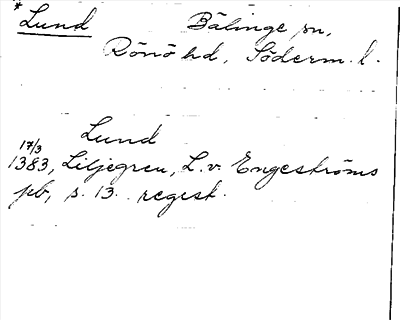 *Lund Bälinge sn,
Rönö hd, Söderm. l.
Lund
17/3
1383, Liljegren, L. v. Engeströms
pb, s. 13. regest.